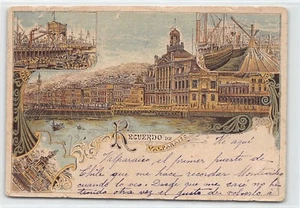 RECUERDO DE
VALPARAISO
He aquí
Valparaiso el primer puerto de
Chile que me hace recordar Montevideo
cuando lo veo. Desde que me casé no he
tenido otra vez el gusto de volverlo á